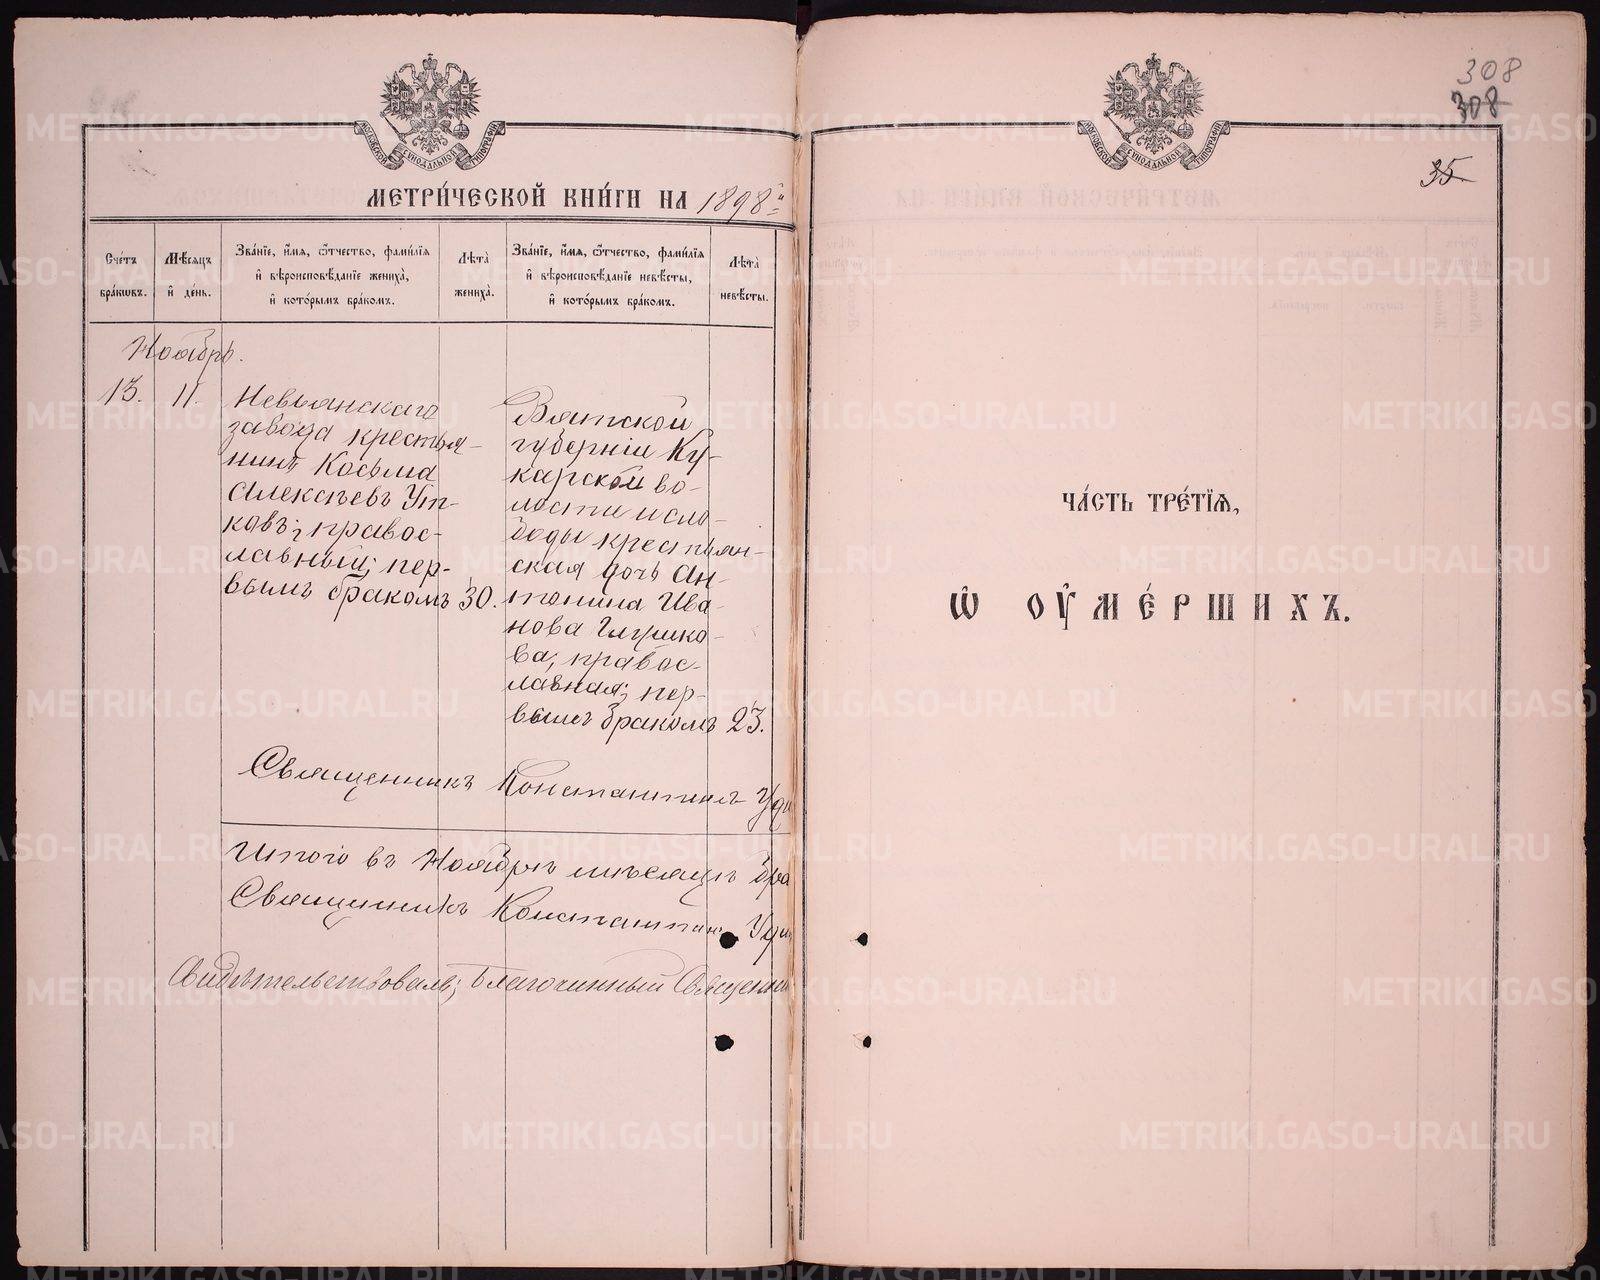 МОСКОВСКОЙ СѴНОДАЛЬНОЙ ТИПОГРАФІИ
МЕТРИ́ЧЕСКОЙ КНИ́ГИ НА 1898 й
Сче́тъ бра́кѡвъ.
Мѣ́сяцъ и҆ де́нь.
Зва́нїе, и҆́мѧ, ѻ҆́тчество, фами́лїѧ
и҆ вѣроисповѣ́данїе жениха̀,
и҆ кото́рымъ бра́комъ.
Лѣ́та жениха̀.
Зва́нїе, и҆́мѧ, ѻ҆́тчество, фами́лїѧ
и҆ вѣроисповѣ́данїе невѣ́сты,
и҆ кото́рымъ бра́комъ.
Лѣ́та невѣ́сты.
Ноябрь.
13. 11.
Невьянскаго
завода крестья-
нинъ Косьма
Алексѣевъ Ут-
ковъ; правос-
лавный; пер-
вымъ бракомъ 30.
Вятской
губерніи Ку-
карской во-
лости и сло-
боды крестьян-
ская дочь Ан-
тонина Ива-
нова Глушко-
ва; правос-
лавная; пер-
вымъ бракомъ 23.
Священникъ Константинъ Уди
Итого въ Ноябрѣ мѣсяцѣ бра
Священникъ Константинъ Уди
Свидѣтельствовалъ; Благочинный Священни
308
308
35
МОСКОВСКОЙ СѴНОДАЛЬНОЙ ТИПОГРАФІИ
ЧА́СТЬ ТРЕ́ТЇѦ,
Ѽ ОУ҆МЕ́РШИХЪ.
METRIKI.GASO-URAL.RU